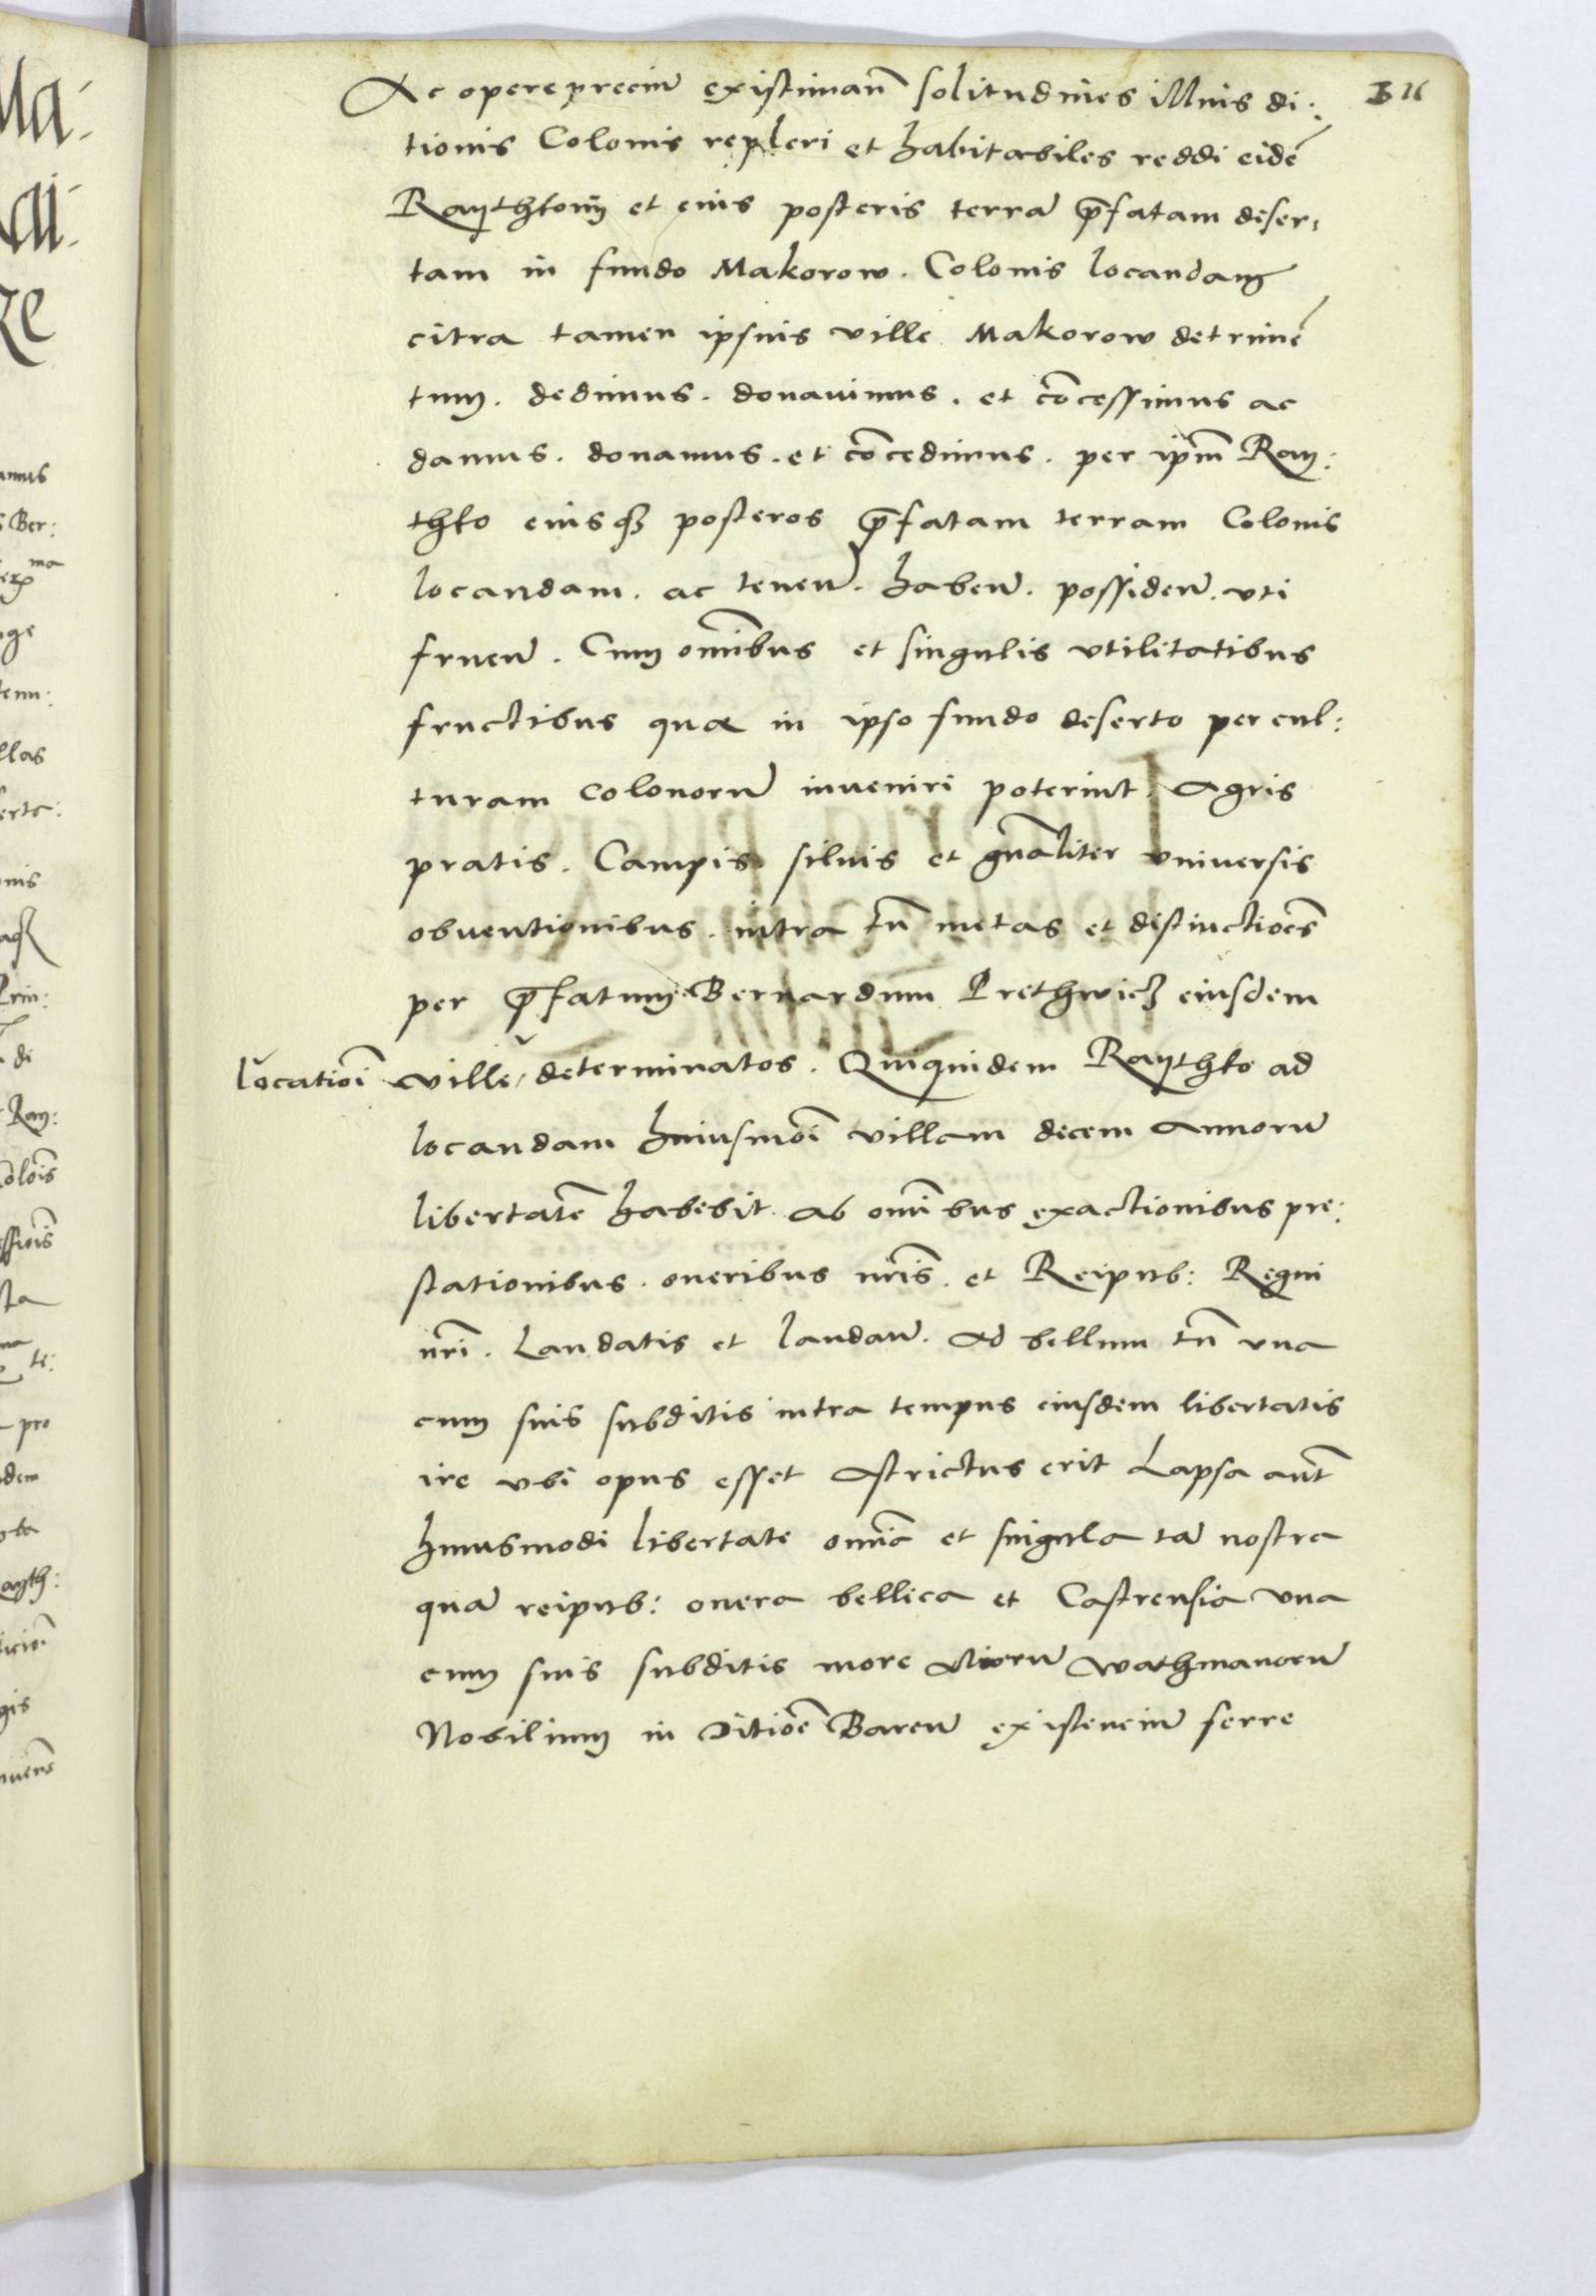 Ac operepreciū existimañ solitudines illius di:
tionis Colonis repleri et habitabiles reddi eidē
Raythkoni et eius posteris terrā p̄fatam deser,
tam in fundo Makorow. Colonis locandam
citra tamen ipsius ville Makorow detrimē
tum. dedimus. donauimus. et cōcessimus ac
damus. donamus. et cōcedimus. per ipm̄ Ray:
thko eiusqȝ posteros p̄fatam terram Colonis
locandam. ac teneñ. habeñ. possideñ. vti
frueñ. Cum om̄ibus et singulis vtilitatibus
fructibus quæ in ipso fundo deserto per cul:
turam colonorū inueniri poterint. Agris
pratis. Campis siluis et gn̄aliter vniuersis
obuentionibus. intra tn̄ metas et distinctiōes
per p̄fatum Bernardum Prethwicz eiusdem
locatiōi ville, determinatos. Quiquidem Raythko ad
locandam huiusmōi villam decem Annorū
libertatē habebit ab om̄ibus exactionibus pre:
stationibus. oneribus nr̄is. et Reipub: Regni
nr̄i. Laudatis et laudañ. Ad bellum tn̄ vna
cum suis subditis intra tempus eiusdem libertatis
ire vbi opus esset Astrictus erit Lapsa aūt
huiusmodi libertate om̄ia et singula tā nostra
quā reipub: onera bellica et Castrensia vna
cum suis subditis more Aliorū wathmanorū
Nobilium in Ditiōe Bareñ existenciū ferre